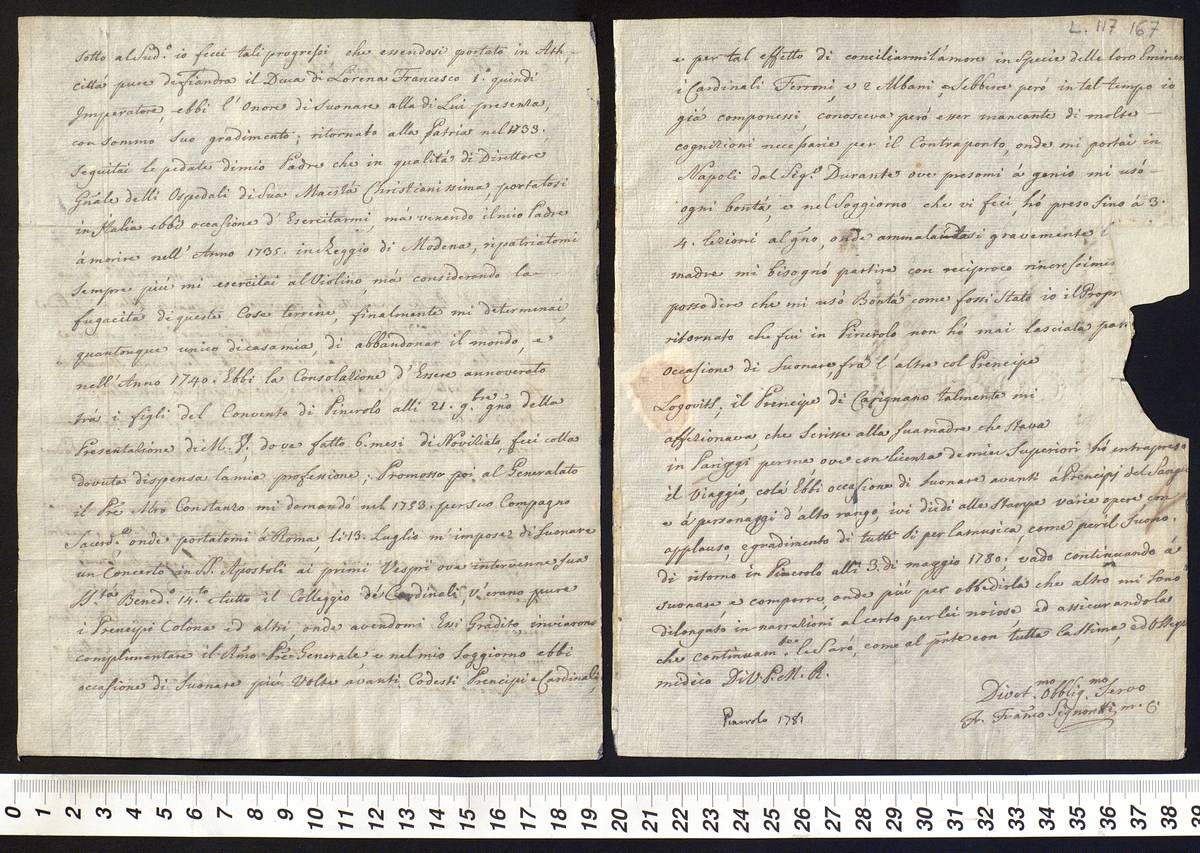 sotto al Sud.º io feci tali progressi che essendosi portato in Ath,
cittá pure di fiandra il Duca di Lorena Francesco 1.º quindi
Imperatore, ebbi l'Onore di Suonare alla di Lui presenza,
con sommo suo gradimento; ritornato alla patria nel 1733.
Seguitai le pedate di mio Padre che in qualitá di Direttore
Gñale delli Ospedali di Sua Maestá Christianissima, portatosi
in Italia ebbi occasione d'Esercitarmi, má venendo il mio Padre
á morire nell'Anno 1735. in Reggio di Modena, ripatriatomi
sempre piú mi esercitai al Violino má considerando la
fugacitá di queste Cose terrene, finalmente mi determinai,
quantonque unico di casa mia, di abbandonar il mondo, e
nell'Anno 1740. Ebbi la Consolazione d'Essere annoverato
trá i figli del Convento di Pinerolo alli 21. 9.bre gño della
Presentazione di M. V., dove fatto 6. mesi di Noviziato, feci colla
dovuta dispensa la mia professione; Promosso poi al Generalato
il Pre Mro Constanzo mi domandó nel 1753. per suo Compagno
Sacerd.e onde portatomi á Roma, li 13. Luglio m'impose di Suonare
un Concerto in SS. Apostoli ai primi Vespri ove intervenne Sua
SS.tá Bened.º 14.to e tutto il Colleggio dé Cardinali, v'erano pure
i Prencipi Colona ed altri onde avendomi Essi Gradito inviarono
complimentare il Rm̃o Pre Generale, e nel mio Soggiorno ebbi
occasione di Suonare piú Volte avanti Codesti Prencipi e Cardinali,
L. 117 167
e per tal effetto di conciliarmi l'amore in Specie delle loro Eminen
i Cardinali Ferroni, e 2 Albani, e Sebbene peró in tal tempo io
giá componessi, conosceva peró esser mancante di molte
cognizioni necessarie per il Contraponto, onde mi portai in
Napoli dal Sig.r Durante ove presomi á genio mi usó
ogni bontá, e nel Soggiorno che vi feci, hó preso sino á 3.
4. lezioni al gño, onde ammalandosi gravemente l
madre mi bisognó partire con reciproco rincrescime
posso dire che mi usó Bontá come fossi stato io il Propr
ritornato che fui in Pinerolo non hó mai lasciata pas
occasione di Suonare, frá l'altre col Prencipe
Logovits, il Prencipe di Carignano talmente mi
affezionava, che scrisse alla sua madre che stava
in Pariggi per me ove con licenza de miei Superiori hó intrapreso
il Viaggio, colá Ebbi occasione di Suonare avanti á Prencipi del Sangue
e á personaggi d'alto rango, ivi diedi alle stampe varie opere con
applauso, e gradimento di tutti si per la musica, come per il Suono.
di ritorno in Pinerolo alli 3. di maggio 1780. vado continuando á
suonare e comporre, onde piú per obbedirla che altro mi sono
dilongato in narrazioni al certo per lei noiose ed assicurandola
che continuam.te le Saró, come al pñte con tutta la stima, ed Osseq
mi dico Di V. P. M. R.
Divot.mo Obblig.mo Servo
F. Franco Signoretti m. C.
Pinerolo 1781
0 1 2 3 4 5 6 7 8 9 10 11 12 13 14 15 16 17 18 19 20 21 22 23 24 25 26 27 28 29 30 31 32 33 34 35 36 37 38 39